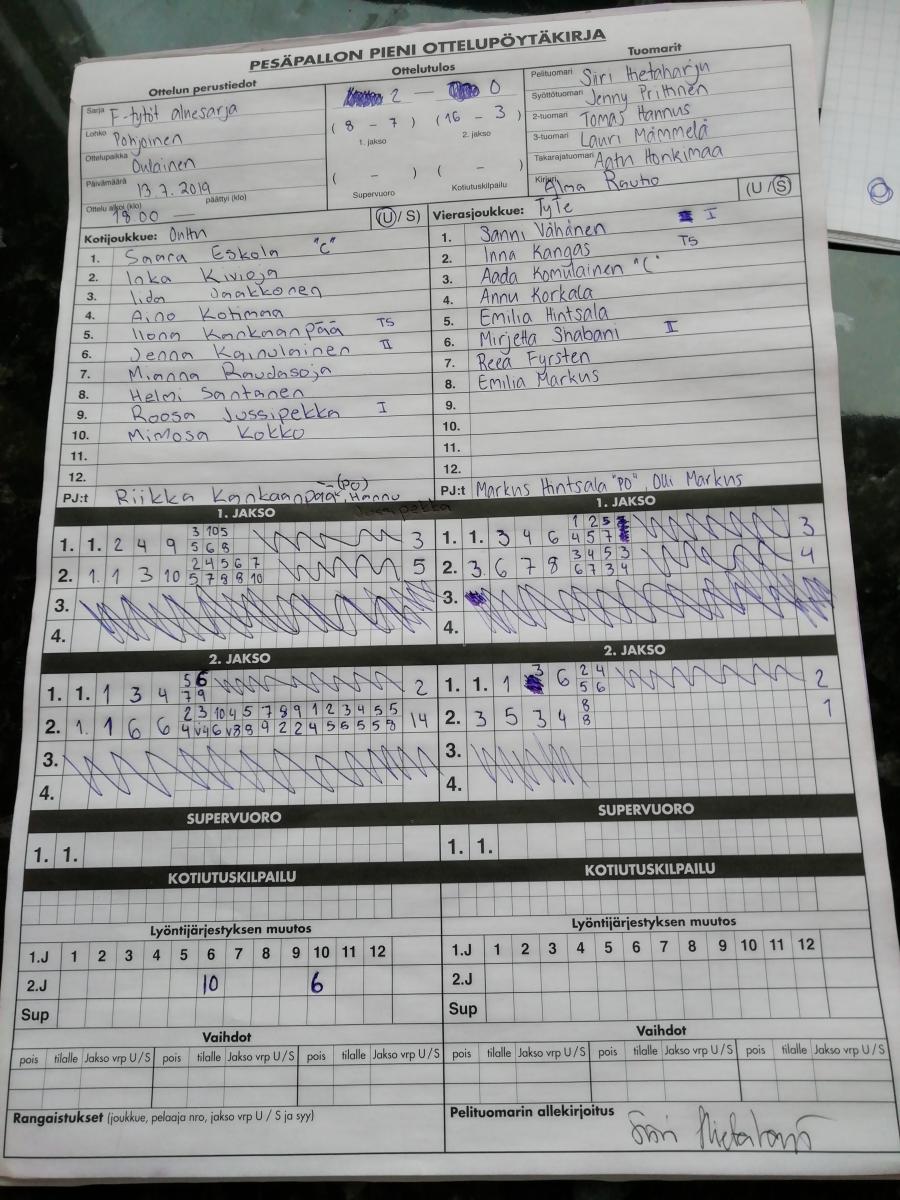 PESÄPALLON PIENI OTTELUPÖYTÄKIRJA
Ottelun perustiedot
Sarja F-tytöt aluesarja
Lohko Pohjoinen
Ottelupaikka Oulainen
Päivämäärä 13.7.2019
Ottelu alkoi (klo) 18 00 — päättyi (klo)
Ottelutulos
2 — 0
( 8 - 7 ) (16 - 3 )
1. jakso 2. jakso
( - ) ( - )
Supervuoro Kotiutuskilpailu
Tuomarit
Pelituomari Siiri Hietaharju
Syöttötuomari Jenny Prittinen
2-tuomari Tomas Hannus
3-tuomari Lauri Mämmelä
Takarajatuomari Aatu Honkimaa
Kirjuri Alma Rautio
Kotijoukkue: OulTu (U / S)
1. Saara Eskola "C"
2. Inka Kivioja
3. Iida Jaakkonen
4. Aino Kotimaa
5. Ilona Kankaanpää TS
6. Jenna Kainulainen II
7. Mianna Raudasoja
8. Helmi Santanen
9. Roosa Jussipekka I
10. Mimosa Kokko
11.
12.
PJ:t Riikka Kankaanpää (PO), Hannu
Jussipekka
Vierasjoukkue: TyTe (U / S)
1. Sanni Vähänen I
2. Inna Kangas TS
3. Aada Komulainen "C"
4. Annu Korkala
5. Emilia Hintsala
6. Mirjetta Shabani II
7. Reea Fyrsten
8. Emilia Markus
9.
10.
11.
12.
PJ:t Markus Hintsala "PO", Olli Markus
1. JAKSO
3 10 5
1. 1. 2 4 9 5 6 8 3
2 4 5 6 7
2. 1. 1 3 10 5 7 8 8 10 5
3.
4.
1. JAKSO
1 2 5
1. 1. 3 4 6 4 5 7 3
3 4 5 3
2. 3. 6 7 8 6 7 3 4 4
3.
4.
2. JAKSO
5 6
1. 1. 1 3 4 7 9 2
2 3 10 4 5 7 8 9 1 2 3 4 5 5
2. 1. 1 6 6 14
3.
4.
2. JAKSO
3 2 4
1. 1. 1 6 5 6 2
8
2. 3 5 3 4 8 1
3.
4.
SUPERVUORO
1. 1.
SUPERVUORO
1. 1.
KOTIUTUSKILPAILU
KOTIUTUSKILPAILU
Lyöntijärjestyksen muutos
1.J 1 2 3 4 5 6 7 8 9 10 11 12
2.J 10 6
Sup
Lyöntijärjestyksen muutos
1.J 1 2 3 4 5 6 7 8 9 10 11 12
2.J
Sup
Vaihdot
pois tilalle Jakso vrp U / S pois tilalle Jakso vrp U / S pois tilalle Jakso vrp U / S
Vaihdot
pois tilalle Jakso vrp U / S pois tilalle Jakso vrp U / S pois tilalle Jakso vrp U / S
Rangaistukset (joukkue, pelaaja nro, jakso vrp U / S ja syy)
Pelituomarin allekirjoitus
Siiri Hietaharju